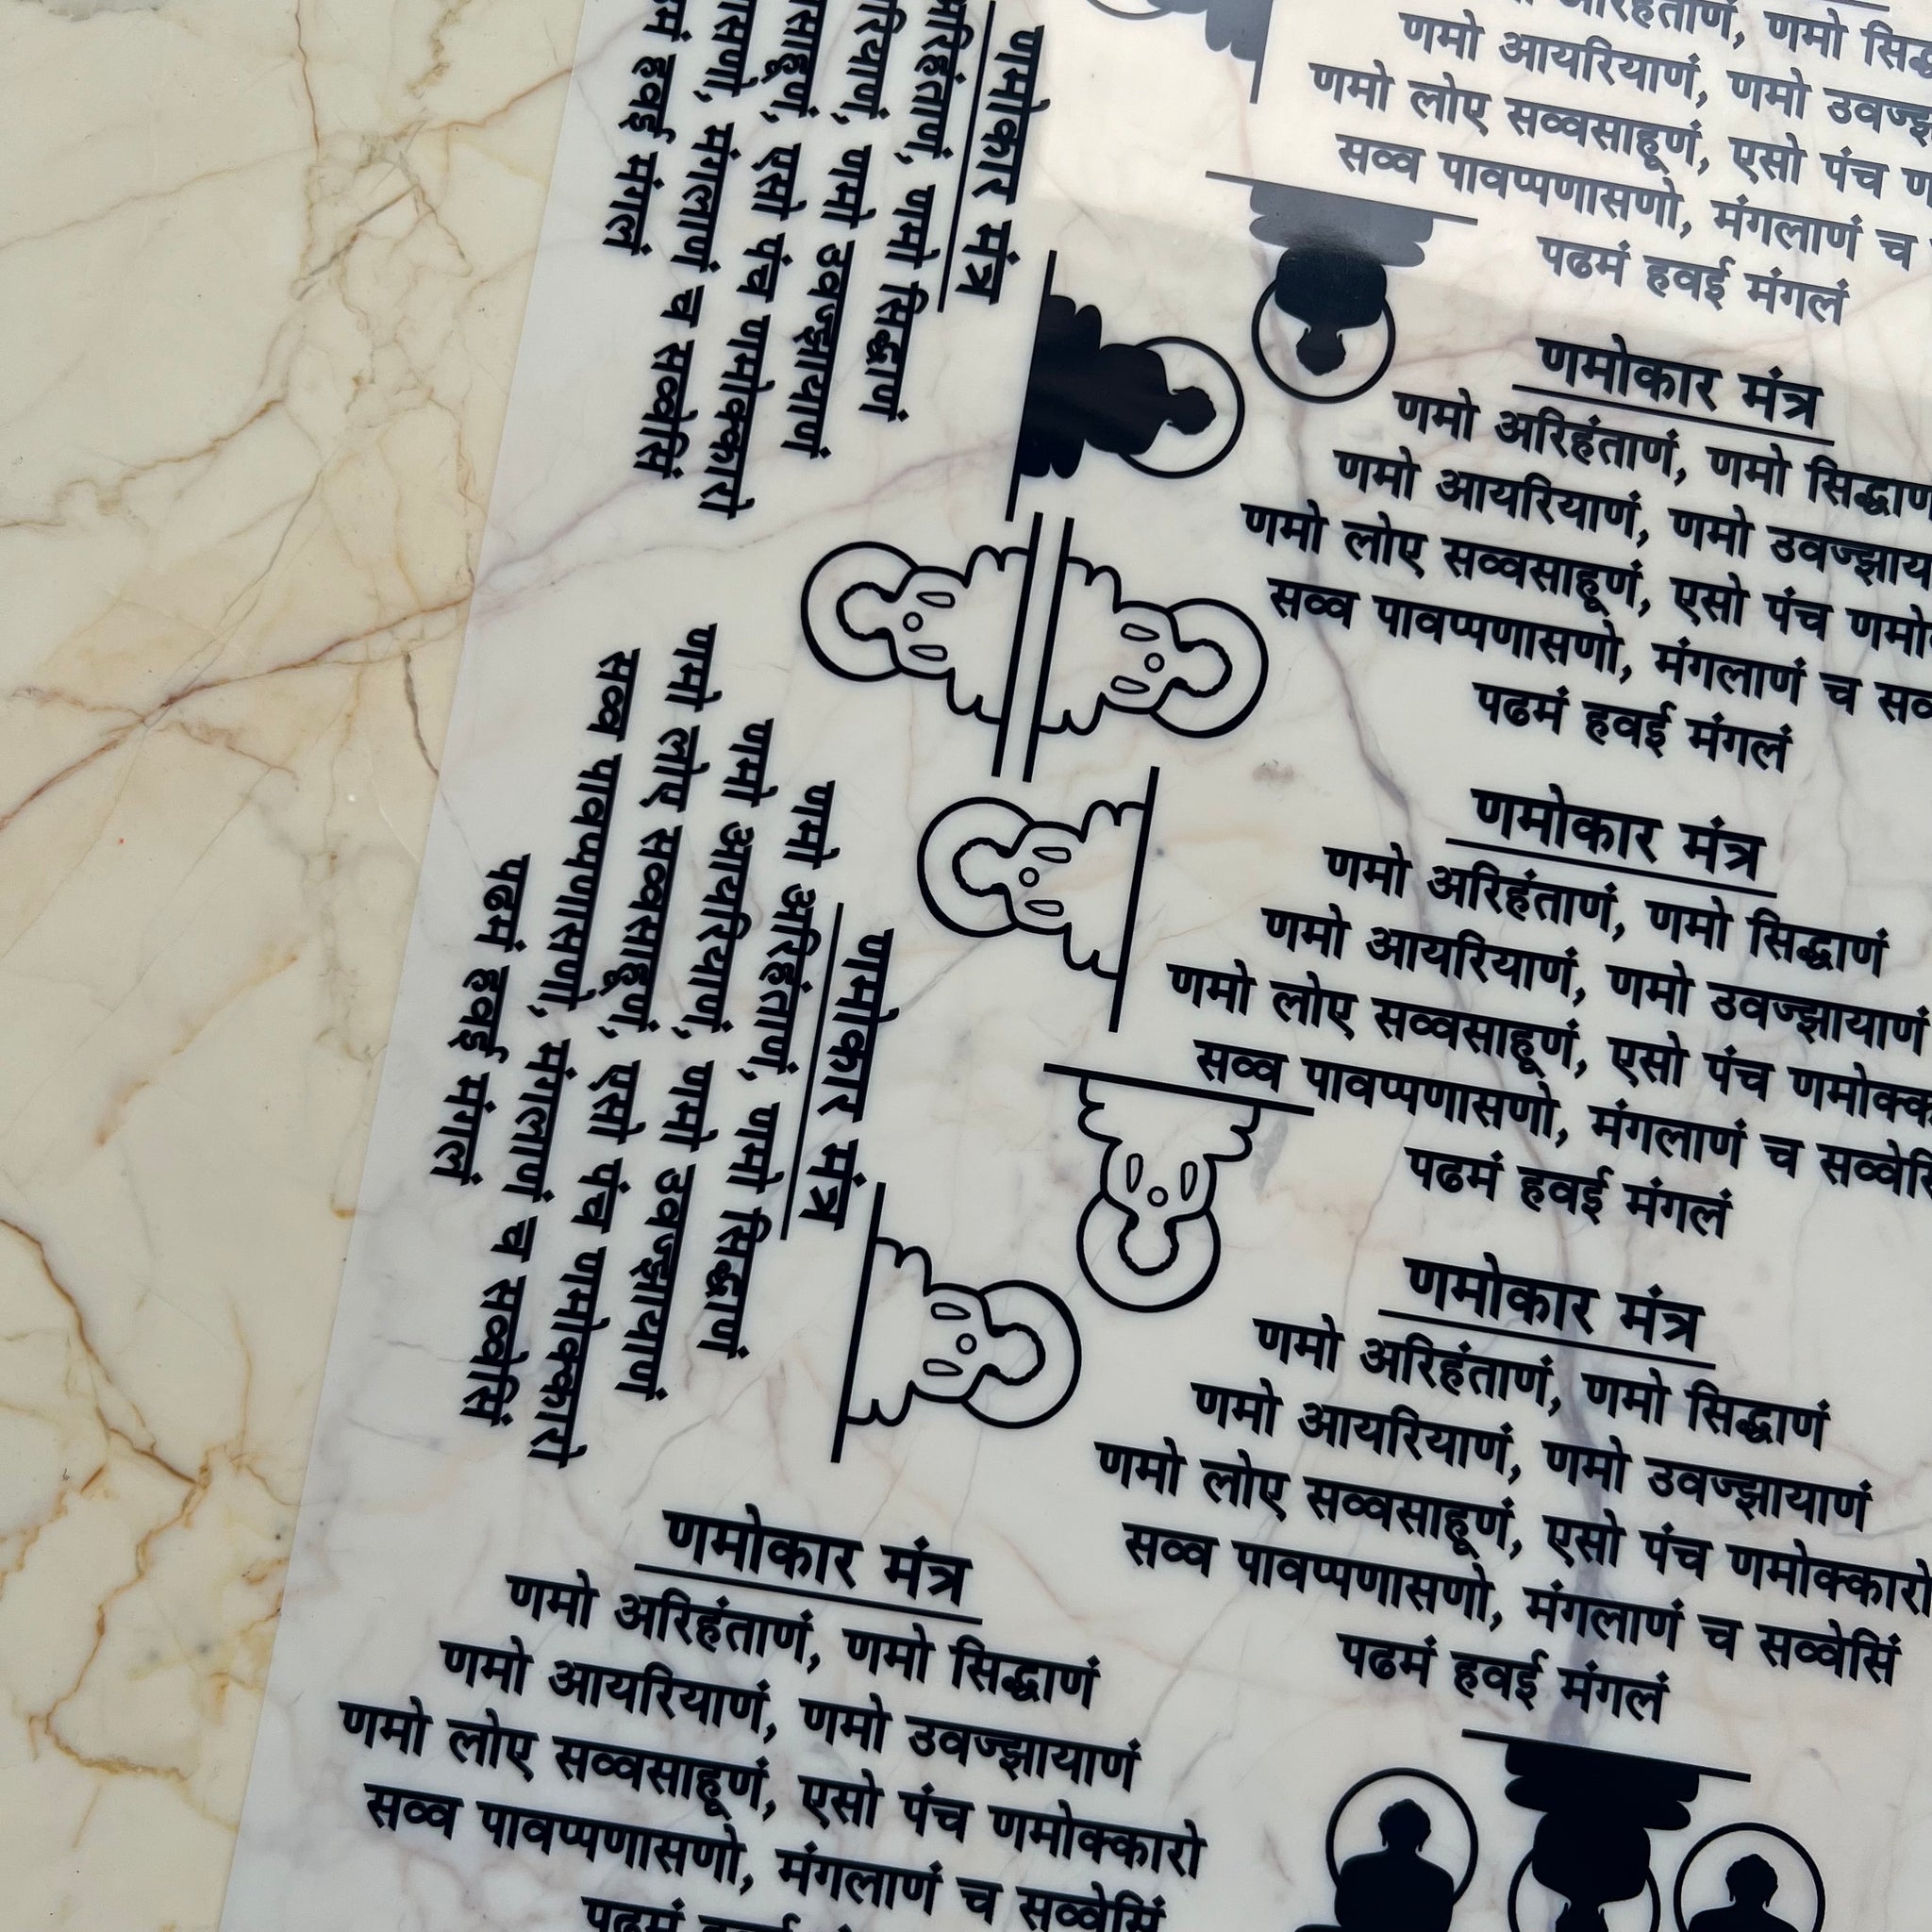 णमोकार मंत्र
अरिहंताणं, णमो सिद्धाणं
णमो उवज्झायाणं
एसो पंच णमोक्कारो
मंगलाणं च सव्वेसिं
हवई मंगलं
अरिहंताणं, णमो
णमो आयरियाणं, णमो
णमो लोए सव्वसाहूणं, एसो पंच
सव्व पावप्पणासणो, मंगलाणं च
पढमं हवई मंगलं
णमोकार मंत्र
णमो अरिहंताणं, णमो सिद्धाणं
णमो आयरियाणं, णमो
णमो लोए सव्वसाहूणं, एसो पंच
सव्व पावप्पणासणो, मंगलाणं च
पढमं हवई मंगलं
णमोकार मंत्र
णमो अरिहंताणं, णमो सिद्धाणं
णमो आयरियाणं, णमो उवज्झायाणं
णमो लोए सव्वसाहूणं, एसो पंच
सव्व पावप्पणासणो, मंगलाणं च सव्वेसिं
पढमं हवई मंगलं
णमोकार मंत्र
णमो अरिहंताणं, णमो सिद्धाणं
णमो आयरियाणं, णमो उवज्झायाणं
णमो लोए सव्वसाहूणं, एसो पंच णमोक्कारो
सव्व पावप्पणासणो, मंगलाणं च सव्वेसिं
पढमं हवई मंगलं
णमोकार मंत्र
णमो अरिहंताणं, णमो सिद्धाणं
णमो आयरियाणं, णमो उवज्झायाणं
णमो लोए सव्वसाहूणं, एसो पंच णमोक्कारो
सव्व पावप्पणासणो, मंगलाणं च सव्वेसिं
पढमं हवई मंगलं
णमोकार मंत्र
णमो अरिहंताणं, णमो सिद्धाणं
णमो आयरियाणं, णमो उवज्झायाणं
णमो लोए सव्वसाहूणं, एसो पंच णमोक्कारो
सव्व पावप्पणासणो, मंगलाणं च सव्वेसिं
पढमं